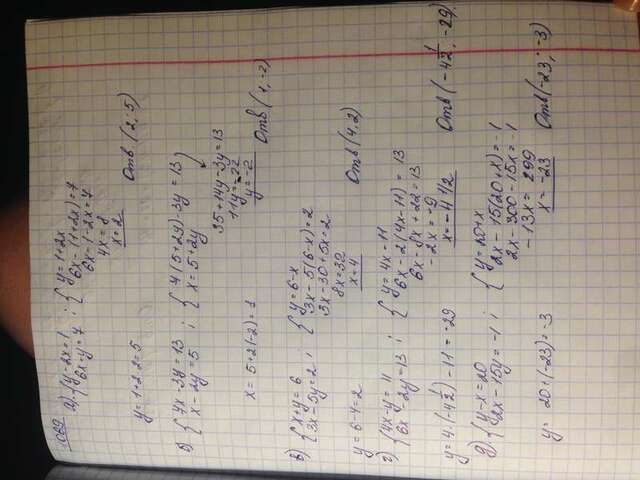 1069
а) {y-2x=1
6x-y=7 ; {y=1+2x
6x-(1+2x)=7
6x-1-2x=7
4x=8
x=2
y=1+2·2=5
Отв (2; 5)
б) {7x-3y=13
x-2y=5 ; {7(5+2y)-3y=13
x=5+2y
35+14y-3y=13
11y=-22
y=-2
x=5+2(-2)=1
Отв (1,-2)
в) {x+y=6
3x-5y=2 ; {y=6-x
3x-5(6-x)=2
3x-30+5x=2
8x=32
x=4
y=6-4=2
Отв (4,2)
г) {4x-y=11
6x-2y=13 ; {y=4x-11
6x-2(4x-11)=13
6x-8x+22=13
-2x=-9
x=-4 1/2
y=4·(-4 1/2)-11=-29
Отв (-4 1/2; -29)
д) {y-x=20
2x-15y=-1 ; {y=20+x
2x-15(20+x)=-1
2x-300-15x=-1
-13x=299
x=-23
y=20+(-23)=-3
Отв (-23; -3)